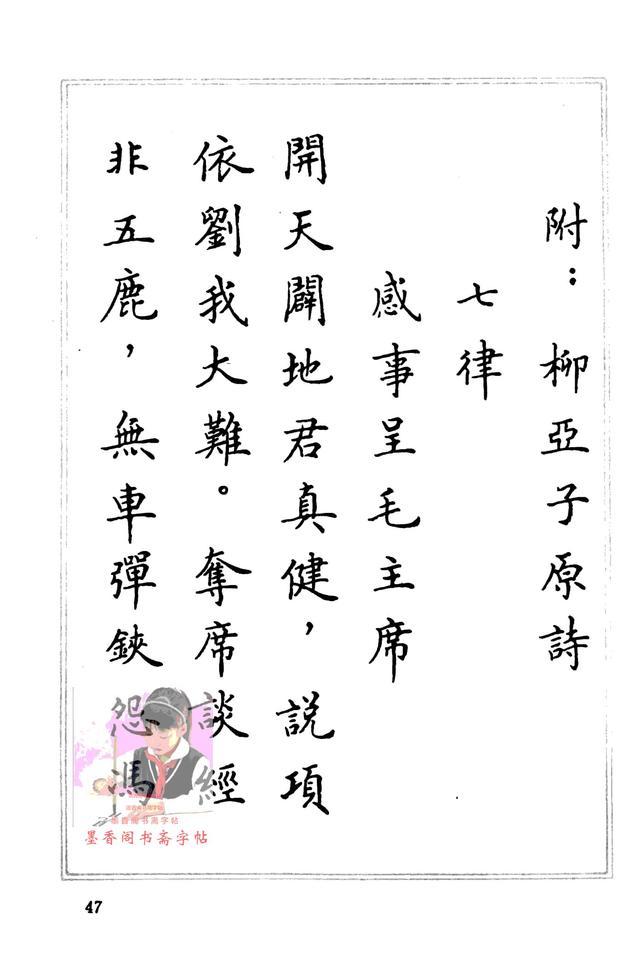 附：柳亞子原詩
七律
感事呈毛主席
開天闢地君真健，説項
依劉我大難。奪席談經
非五鹿，無車彈鋏怨馮
墨香阁书斋字帖
墨香阁书斋字帖
47